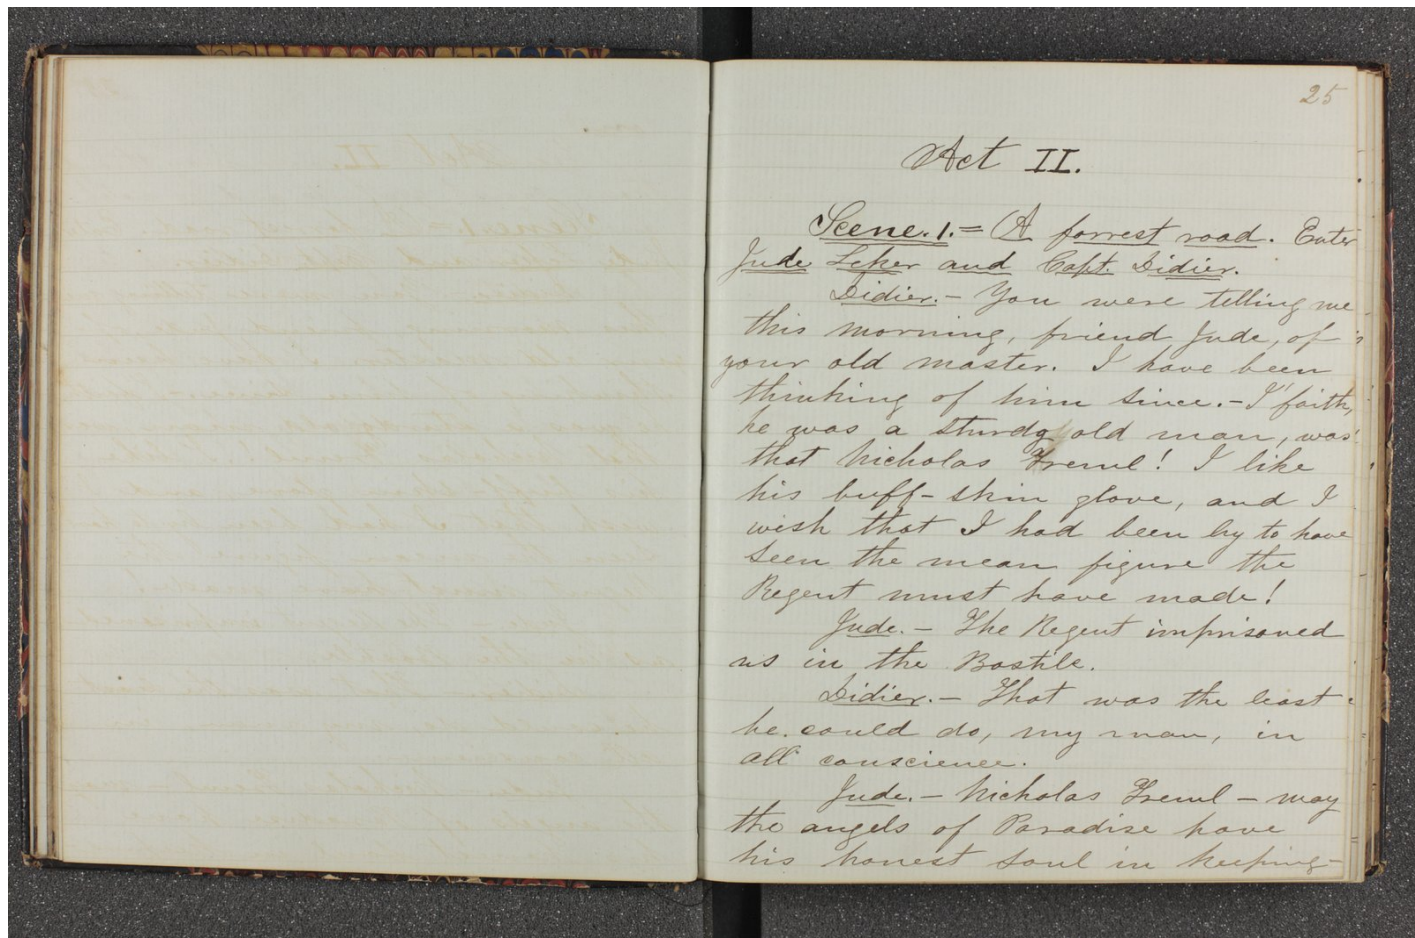 25
Act II.
Scene. 1. = (A forrest road. Enter
Jude Leker and Capt. Didier.
Didier. - You were telling me
this morning, friend Jude, of
your old master. I have been
thinking of him since. - I' faith,
he was a sturdy old man, was
that Nicholas Treml! I like
his buff-skin glove, and I
wish that I had been by to have
seen the mean figure the
Regent must have made!
Jude. - The Regent imprisoned
us in the Bastile.
Didier. - That was the least
he could do, my man, in
all conscience.
Jude. - Nicholas Treml - may
the angels of Paradise have
his honest soul in keeping -